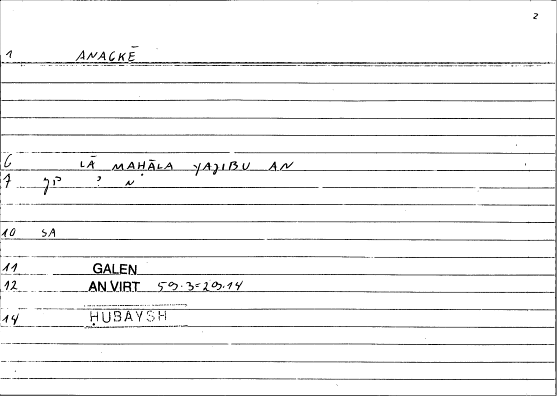 2
1 ANAGKĒ
6 LĀ MAḤĀLA YAJIBU AN
7
10 SA
11 GALEN
12 AN VIRT 59.3=29.14
14 ḤUBAYSH